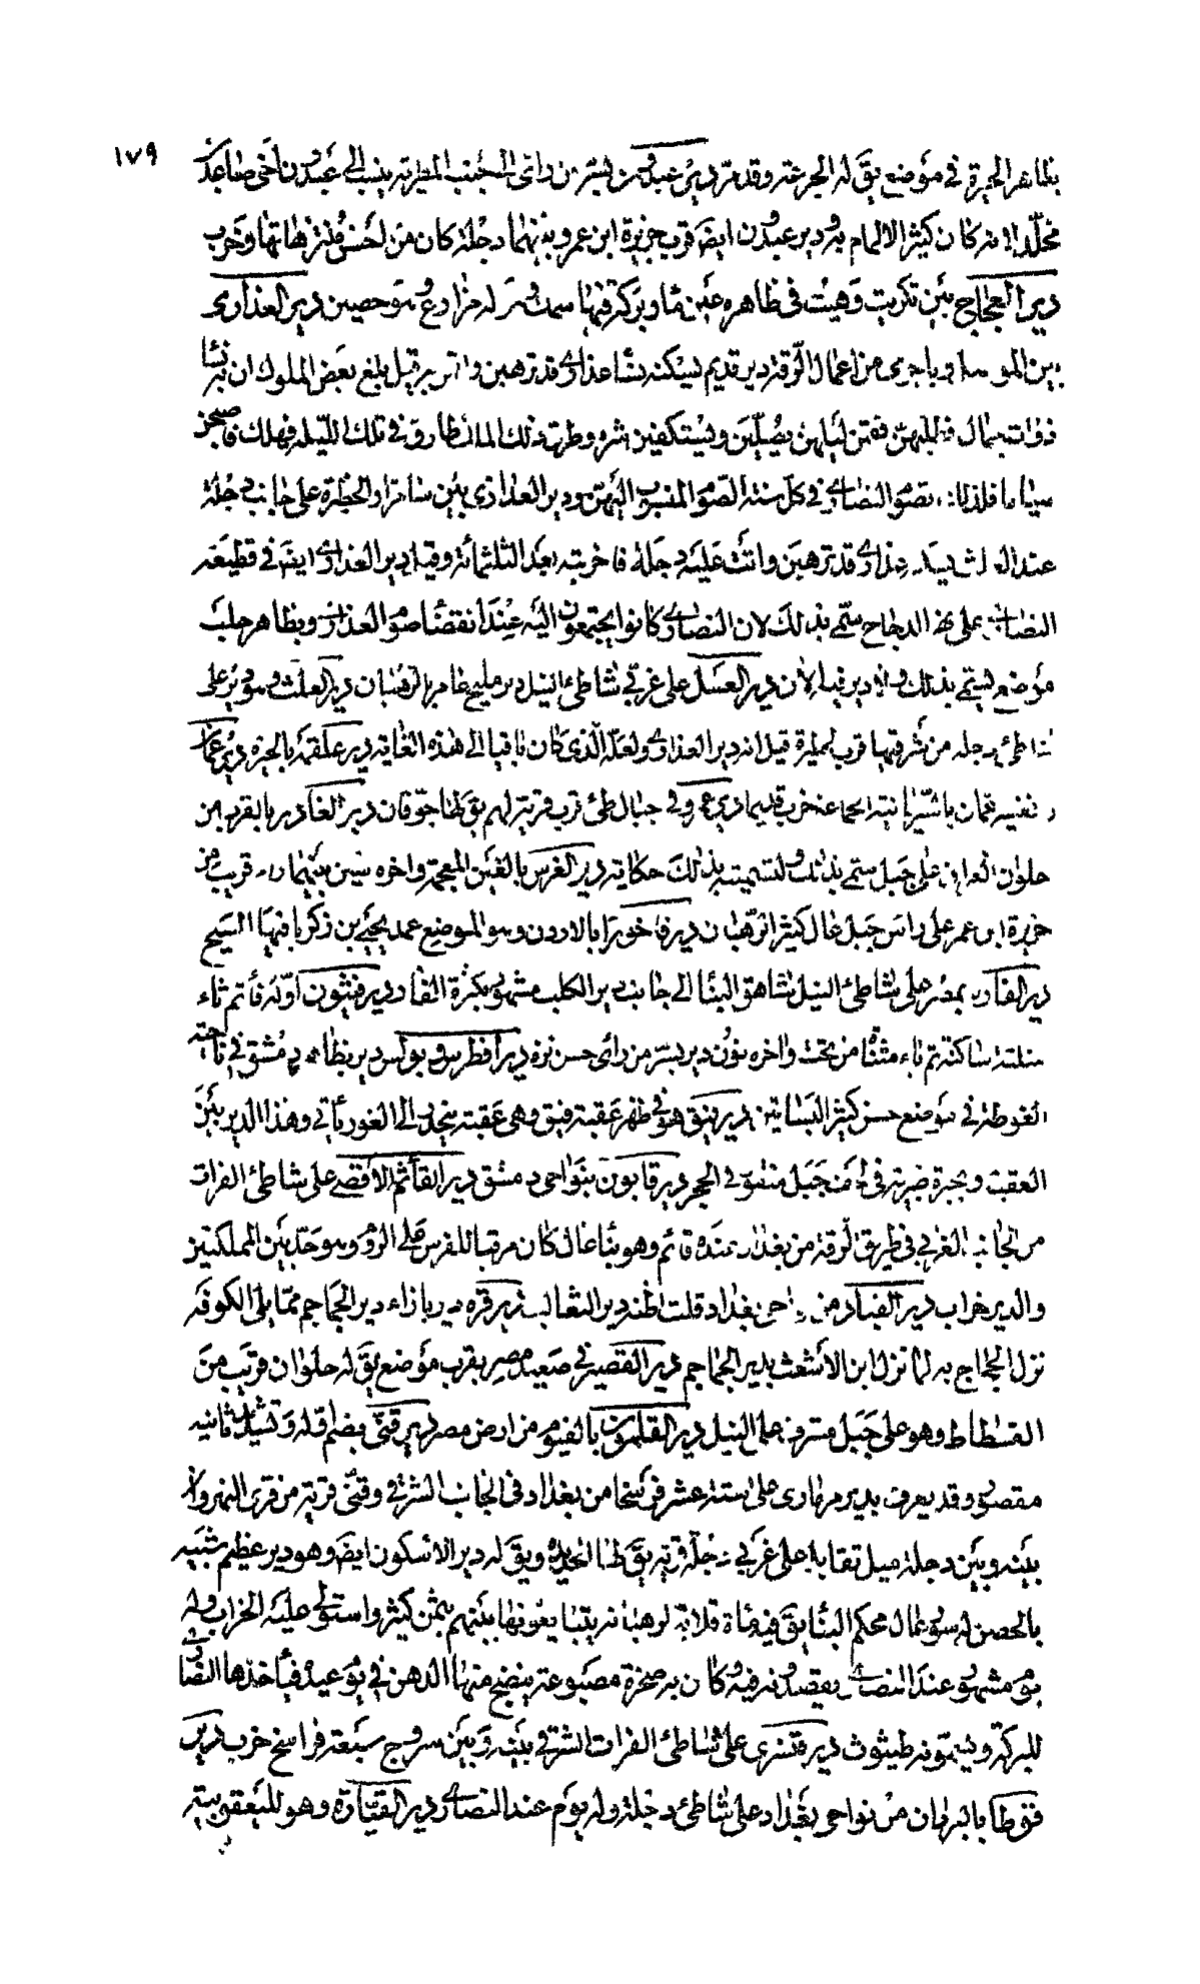 ١٧٩
بظاهر الحيرة في موضع يق له الجرعة وقد مر دير عبدون بسر من رائى الى جنب المطيرة ينسب الى عبدون اخي صاعد بن
مخلد لانه كان كثير الالمام به ودير عبدون ايضا قرب جزيرة ابن عمر وبينهما دجلة كان من احسن منتزهاتها وخرب
دير العجاج بين تكريت وهيت في ظاهره عين ماء وبركة فيها سمك وله مزارع وهو حصين دير العذارى
بين الموصل وباجرمى من اعمال الرقة دير قديم يسكنه نساء عذارى قد ترهبن قيل بلغ بعض الملوك ان فيه نساء
ذوات جمال فطلبهن فقمن ليلهن يصلين ويستكفين شره وطرق ذلك الملك طارق في تلك الليلة فهلك فاصبحن
صياما فلذلك تصوم النصارى في كل سنة الصوم المنسوب اليهن ودير العذارى بين سامرا والحظيرة على جانب دجلة
عذارى قد ترهبن واتت عليه دجلة فاخربته بعد الثلثمائة وقيل دير العذارى ايضا في قطيعة
النصارى على نهر الدجاج سمي بذلك لان النصارى كانوا يجتمعون اليه عند انقضاء صوم العذارى وبظاهر حلب
موضع يسمى بذلك ولا دير فيه الان دير العسل على غربي شاطئ النيل دير مليح عامر بالرهبان دير العلث وهو دير على
شاطئ دجلة من شرقيها قرب الحظيرة قيل انه دير العذارى ولعله الذي كان باقيا الى هذه الغاية دير علقمة بالحيرة دير عمان
تفسير عمان بالسريانية الجماعة خرب قديما دير عمرو في جبال طئ قرب قرية لهم يق لها جو قان دير الغادر بالقرب من
حلوان العراق على جبل سمي بذلك ولتسميته بذلك حكاية دير الغرس بالغين المعجمة واخره سين بينهما راء قريب من
جزيرة ابن عمر على راس جبل عال كثير الرهبان دير فاخورا بالاردن وهو الموضع عمد يحيى بن زكريا فيها المسيح
دير الفار بمصر على شاطئ النيل شاهق البناء الى جانب دير الكلب مشهور بكثرة الفار دير فثيون اوله فاء ثم ثاء
مثلثة ساكنة ثم ياء مثناة من تحت واخره نون دير بسر من رائى حسن نزه دير افطرس وبولس دير بظاهر دمشق في ناحية
الغوطة في موضع حسن كثير البساتين دير فيق هو في ظهر عقبة فيق وهي عقبة ينحدر الى الغور ياتي وهذا الدير بين
العقبة وبحيرة طبرية في لحف جبل منقور في الحجر دير قابون بنواحي دمشق دير القائم الاقصى على شاطئ الفرات
من الجانب الغربي في طريق الرقة من بغداد عنده قائم وهو بناء عال كان مرقبا للفرس على الروم وهو حد بين المملكتين
والدير خراب دير القباب من نواحي بغداد قلت اظنه دير الثعالب دير قرة دير بازاء دير الجماجم مما يلي الكوفة
نزل الحجاج به لما نزل ابن الاشعث بدير الجماجم دير القصير في صعيد مصر بقرب موضع يق له حلوان قريب من
الفسطاط وهو على جبل مشرف على النيل دير القلمون بالفيوم من ارض مصر دير قنى بضم اوله وتشديد ثانيه
مقصور وقد يعرف بدير مرماري على ستة عشر فرسخا من بغداد في الجانب الشرقي وقنى قرية من قرى النهروان
بينه وبين دجلة ميل تقابله على غربي دجلة قرية يق لها الحديدة ويق له دير الاسكون ايضا وهو دير عظيم شبيه
بالحصن له سور عال محكم البناء يق فيه مائة قلاية لرهبانه يتبايعونها بينهم بثمن كثير واستولى عليه الخراب وله
يوم مشهور عند النصارى يقصدونه فيه وكان به صخرة مصبوغة ينضح منها الدهن في يوم عيده فياخذها النصارى
للبركة ويسمونه طيثوث دير قنسرى على شاطئ الفرات الشرقي بينه وبين سروج سبعة فراسخ خرب دير
قوطا بالبردان من نواحي بغداد على شاطئ دجلة وله يوم عند النصارى دير القيارة وهو لليعقوبية